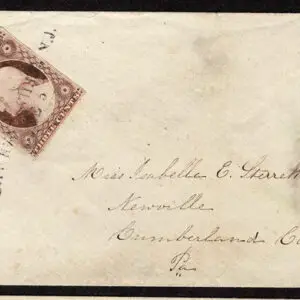 N.J.
THREE CENTS
Miss Isabella E. Sterrett
Newville
Cumberland Co
Pa